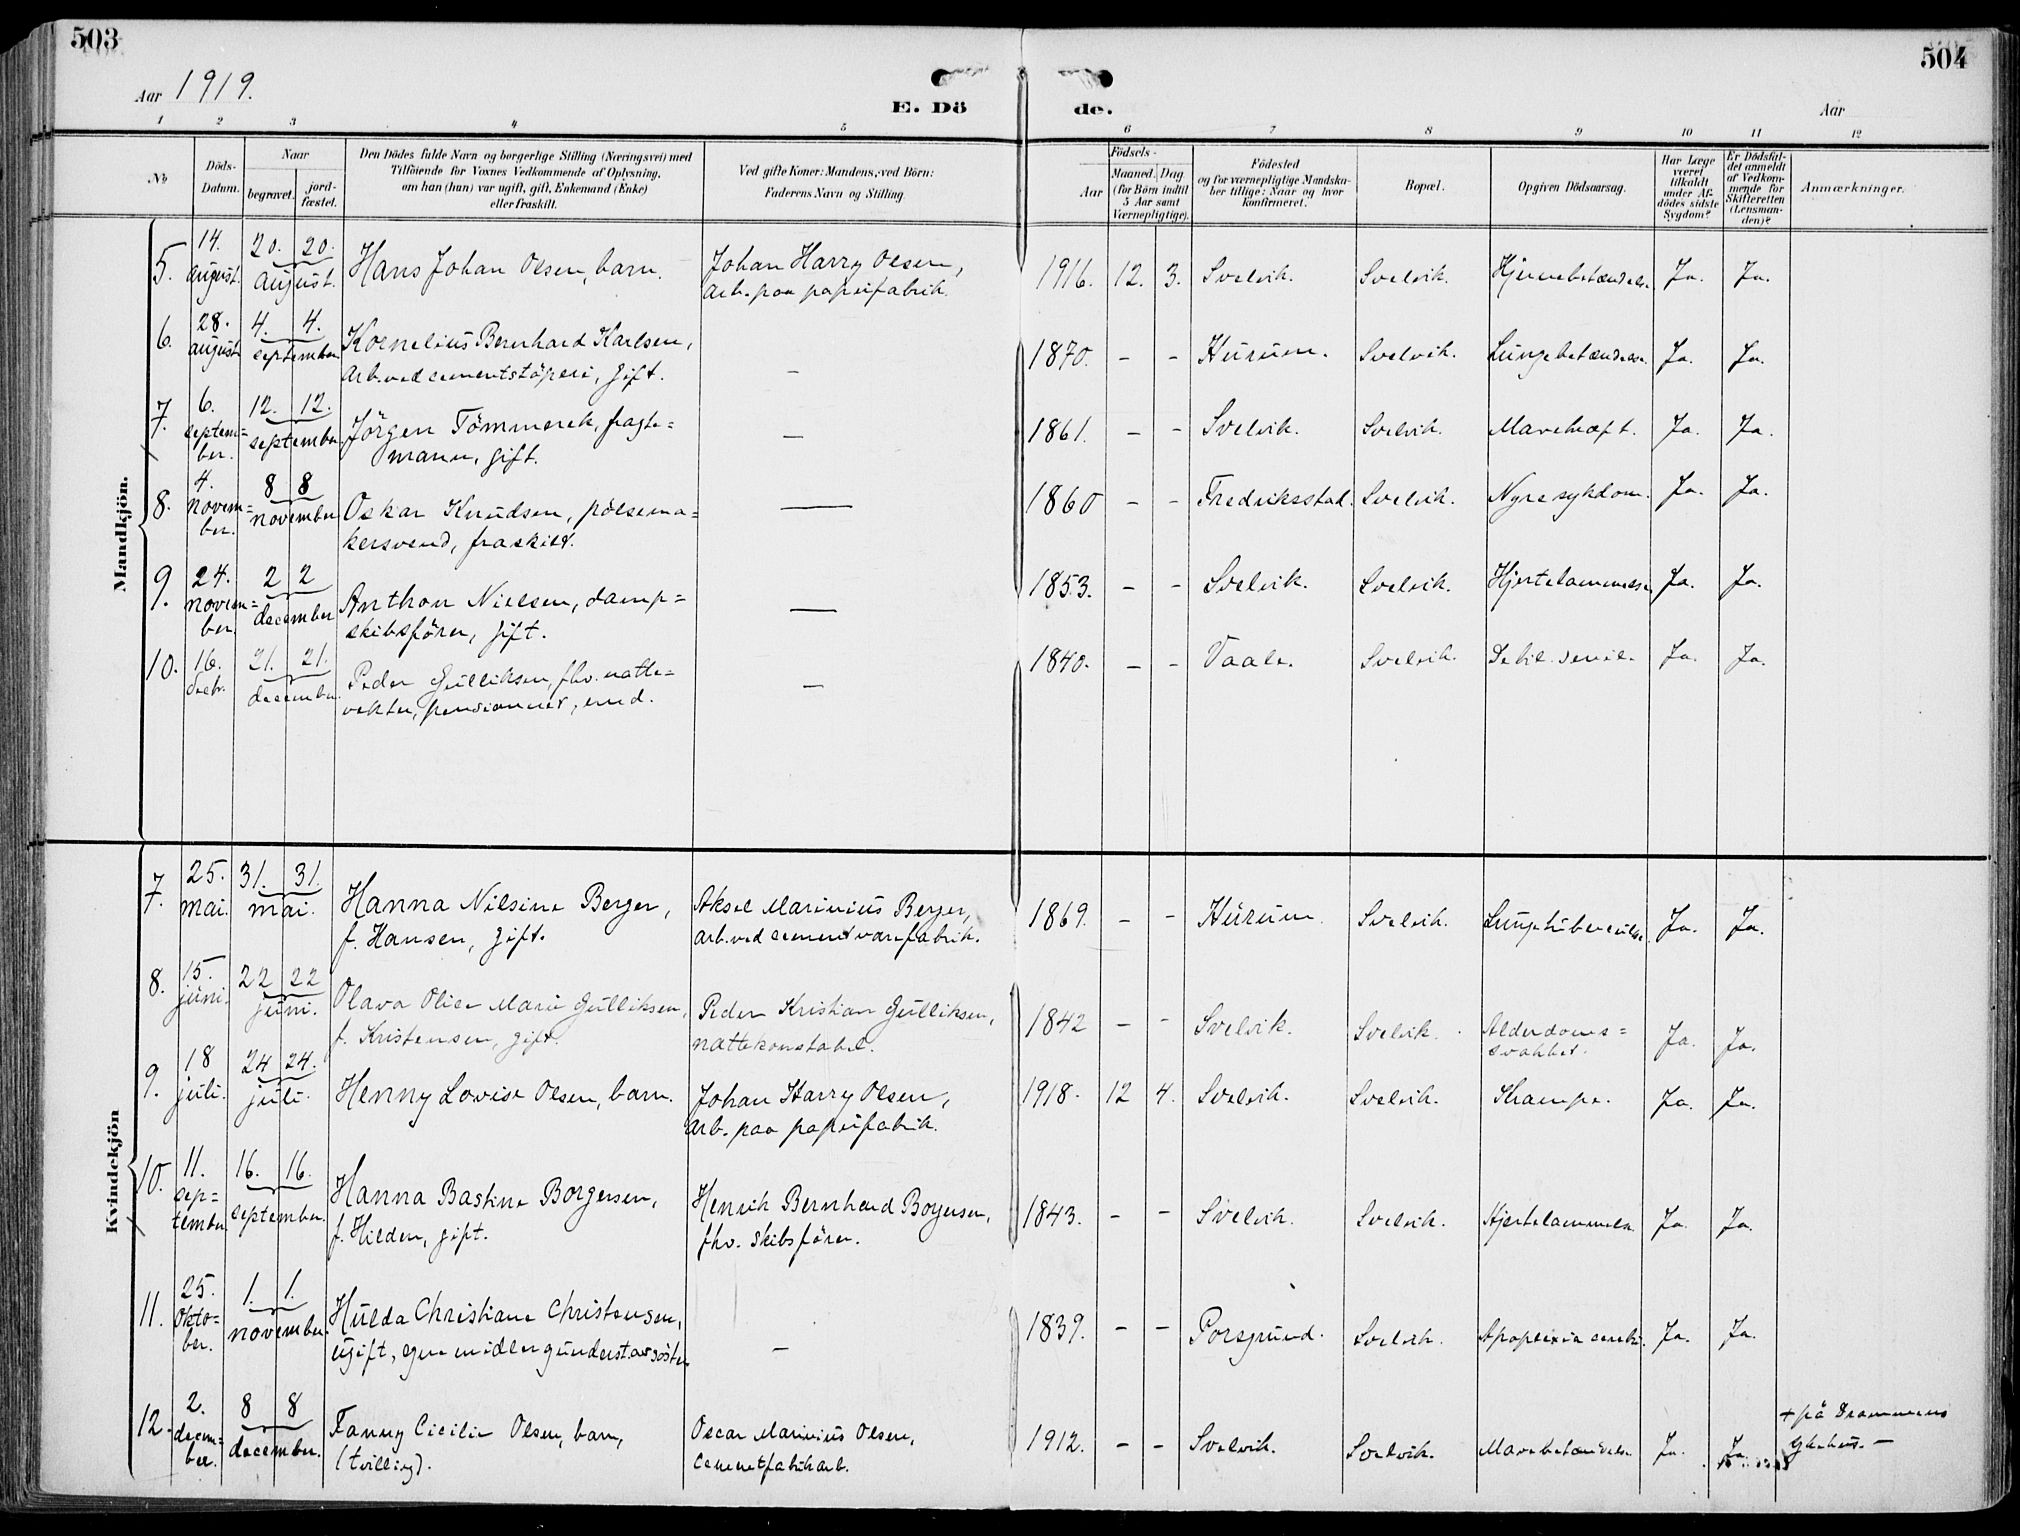 503
504
Aar 1919.
E. Dö
de.
Aar
1 2 3 4 5 6 7 8 9 10 11 12
No
Döds-
Datum.
Naar
begravet.
jord-
fæstet.
Den Dödes fulde Navn og borgerlige Stilling (Næringsvei) med
Tilföiende for Voxnes Vedkommende af Oplysning,
om han (hun) var ugift, gift, Enkemand (Enke)
eller fraskilt.
Ved gifte Koner: Mandens, ved Börn:
Faderens Navn og Stilling.
Födsels-
Aar
Maaned. Dag
(for Börn indtil
5 Aar samt
Værnepligtige).
Födested
og for værnepligtige Mandska-
ber tillige: Naar og hvor
konfirmeret.
Bopæl.
Opgiven Dödsaarsag.
Har Læge
været
tilkaldt
under Af-
dödes sidste
Sygdom?
Er Dödsfal-
det anmeldt
af Vedkom-
mende for
Skifteretten
(Lensman-
den)?
Anmærkninger.
Mandkjön.
5. 14. august. 20. 20. august. Hans Johan Olsen, barn. Johan Harry Olsen, 1916. 12. 3. Svelvik. Svelvik. Hjernebetændelse. Ja. Ja.
arb. paa papirfabrik.
6. 28. august 4. 4. september Kornelius Bernhard Karlsen, 1870. - - Hurum. Svelvik. Lungebetændelse. Ja. Ja.
arb. ved cementstöperi, gift. -
7. 6. septem= ber. 12. 12. september. Jörgen Tömmerek, fragte= - 1861. - - Svelvik. Svelvik. Mavekræft. Ja. Ja.
mann, gift.
8. 4. novem= ber. 8 8 november Oskar Knudsen, pölsema= - 1860 - - Fredriksstad. Svelvik. Nyresykdom. Ja. Ja.
kersvend, fraskilt.
9. 24. novem= ber. 2 2 december Anthon Nielsen, damp= - 1853. - - Svelvik. Svelvik. Hjertelammelse Ja. Ja.
skibsförer, gift.
10. 16. decbr. 21. 21. december. Peder Gulliksen, fhv. natte= - 1840. - - Vaale. Svelvik. Debil. senil. Ja. Ja.
vekter, pensionær, emd.
Kvindekjön
7. 25. mai. 31. 31. mai. Hanna Nilsine Berger, Aksel Marinius Berger, 1869. - - Hurum. Svelvik. Lungetuberculose. Ja. Ja.
f. Hansen, gift. arb. ved cementvarefabrik.
8. 15. juni. 22 22 juni. Olava Olise Marie Gulliksen, Peder Kristian Gulliksen, 1842 - - Svelvik. Svelvik. Alderdoms=
f. Kristensen, gift. nattekonstabel. svakhet. Ja. Ja.
9. 18 juli. 24 24. juli. Henny Lovise Olsen, barn. Johan Harry Olsen, 1918. 12 4. Svelvik. Svelvik. Krampe. Ja. Ja.
arb. paa papirfabrik.
10. 11. sep= tember 16. 16. september. Hanna Bastine Borgersen, Henrik Bernhard Borgersen, 1843. - - Svelvik. Svelvik. Hjertelammelse. Ja. Ja.
f. Hilden, gift. fhv. skibsförer.
11. 25. Okto= ber. 1. 1. november. Hulda Christiane Christensen, - 1839. - - Porsgrund. Svelvik. Apoplexia cerebri. Ja. Ja.
ugift,
12. 2. decem= ber. 8 8 december. Fanny Cicilie Olsen, barn, Oscar Marinius Olsen, 1912. - - Svelvik. Svelvik. Mavebetændelse Ja. Ja. + på Drammens
(tvilling). Cementfabrikarb. sykehus. -